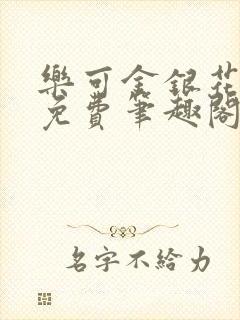 樂可金銀花
免費筆趣閣
名字不給力